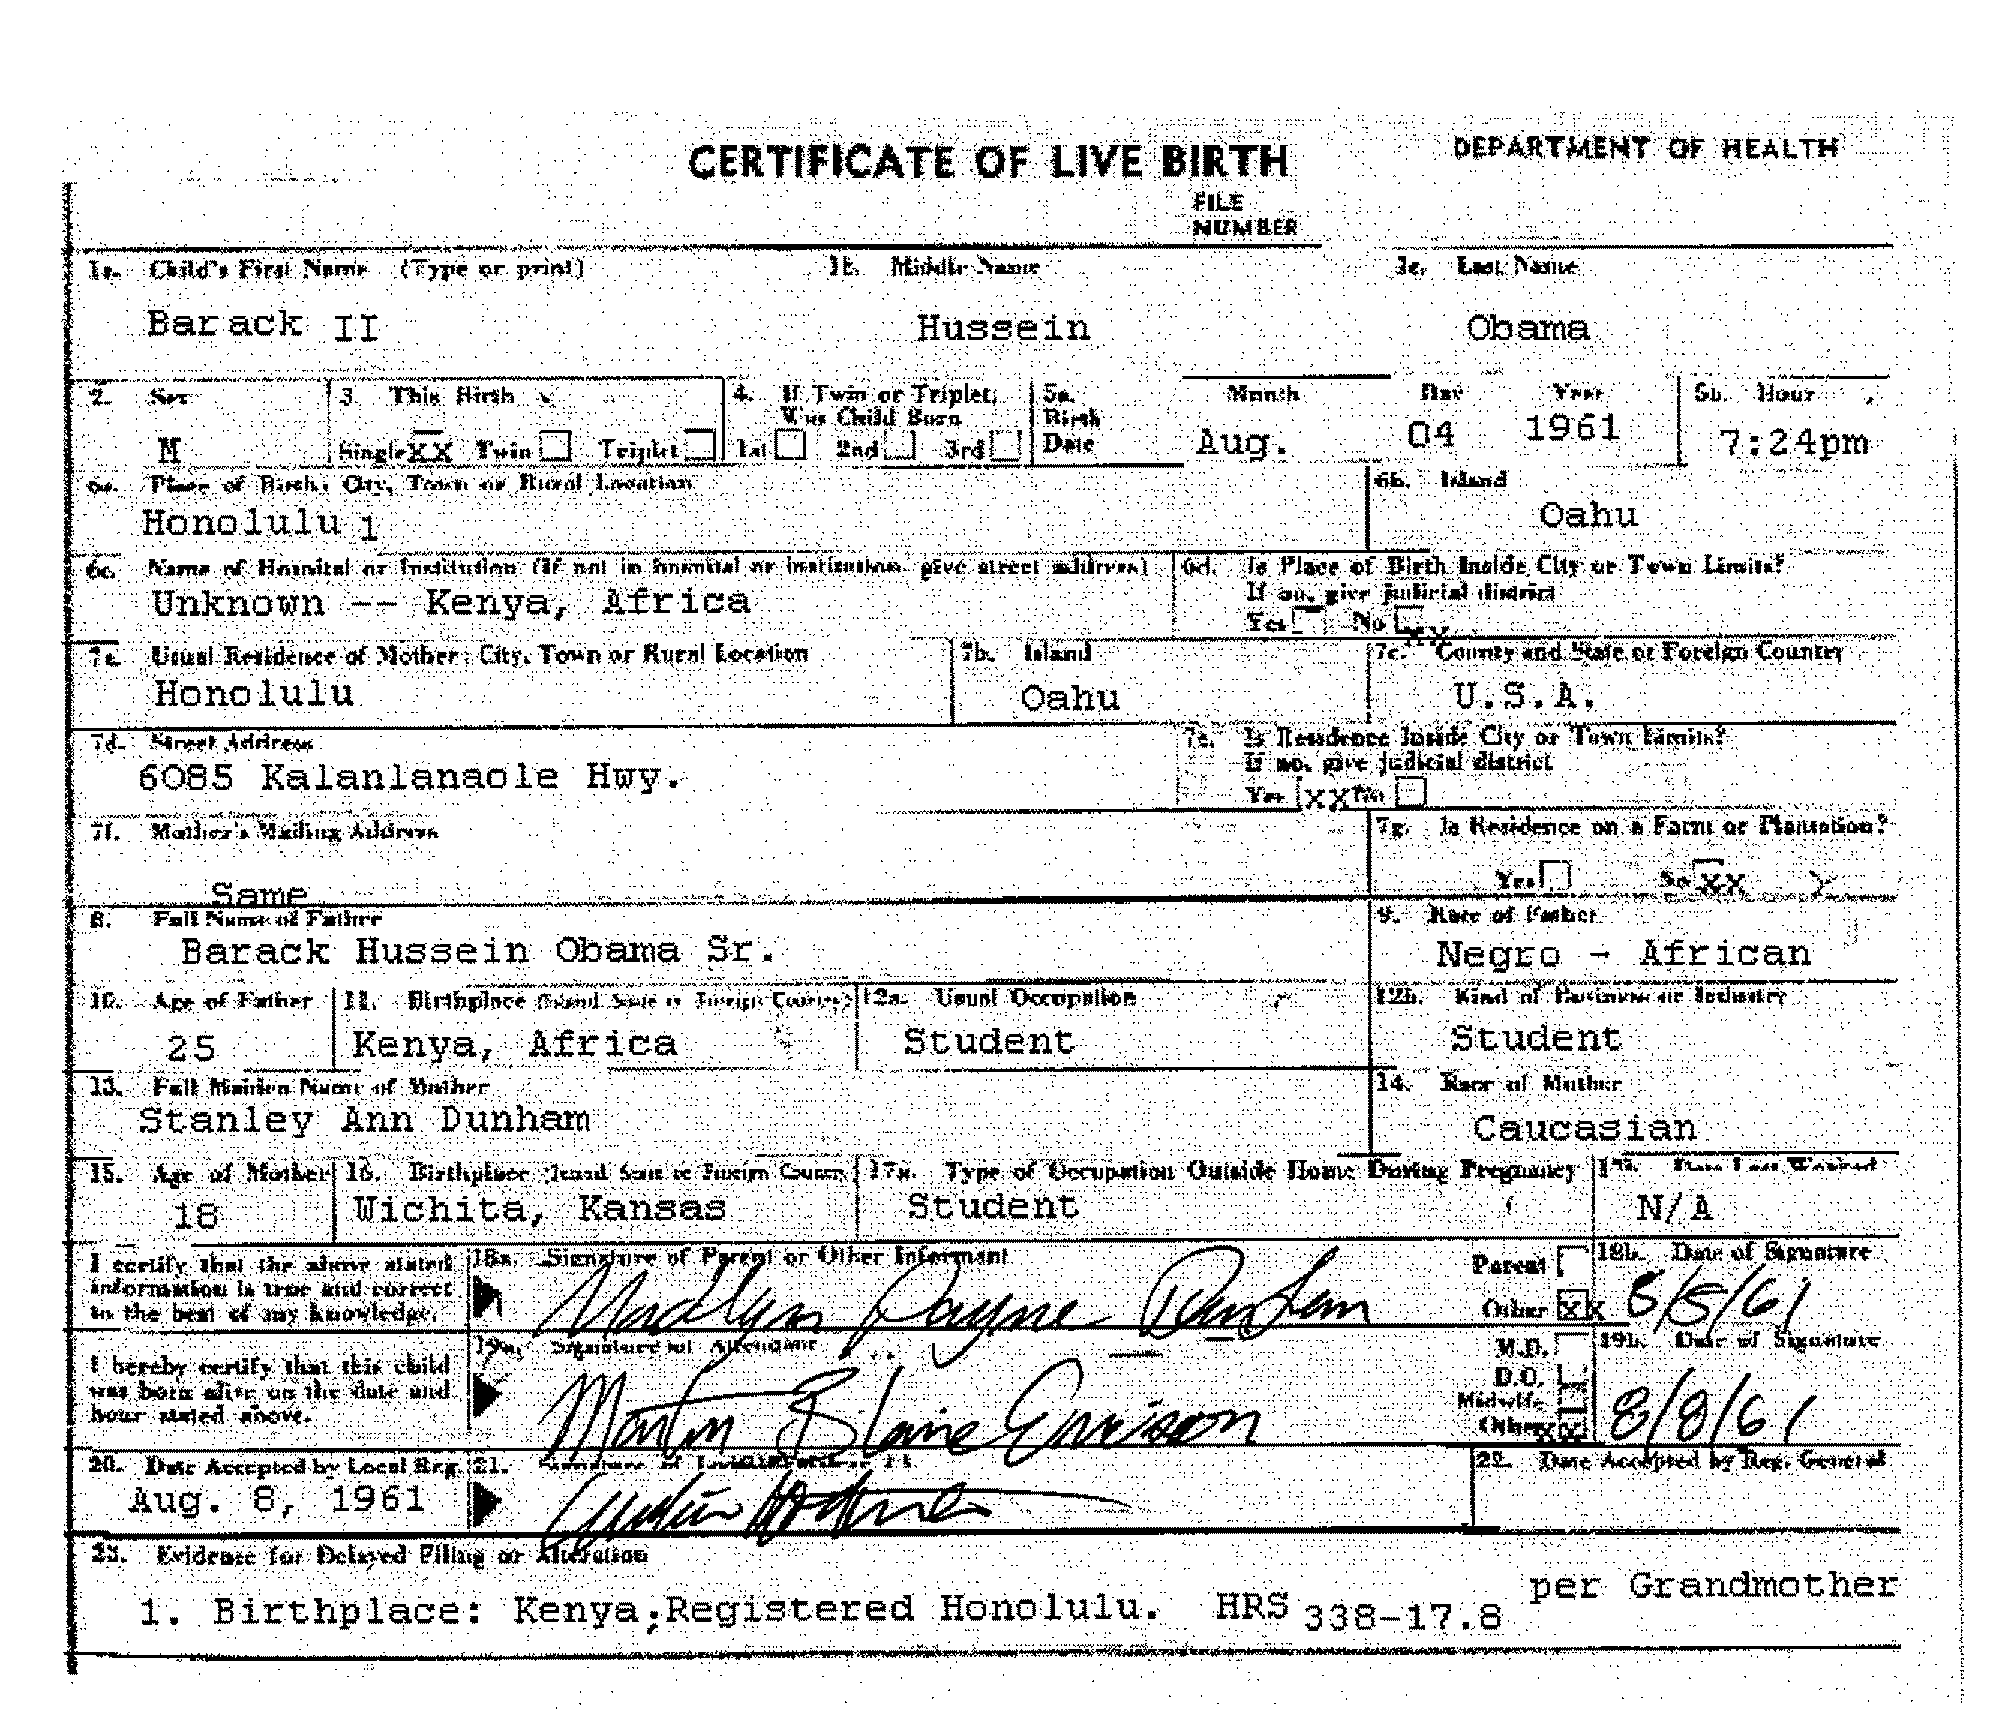 CERTIFICATE OF LIVE BIRTH
DEPARTMENT OF HEALTH
FILE
NUMBER
1a. Child's First Name (Type or print) 1b. Middle Name 1c. Last Name
Barack II Hussein Obama
2. Sex 3. This Birth 4. If Twin or Triplet, 5a. Month Day Year 5b. Hour
Was Child Born Birth
M Single xx Twin Triplet 1st 2nd 3rd Date Aug. 04 1961 7:24pm
6a. Place of Birth: City, Town or Rural Location 6b. Island
Honolulu 1 Oahu
6c. Name of Hospital or Institution (If not in hospital or institution, give street address) 6d. Is Place of Birth Inside City or Town Limits?
If no, give judicial district
Unknown -- Kenya, Africa
Yes No xx
7a. Usual Residence of Mother: City, Town or Rural Location 7b. Island 7c. County and State or Foreign Country
Honolulu Oahu U.S.A.
7d. Street Address 7e. Is Residence Inside City or Town Limits?
If no, give judicial district
6085 Kalanlanaole Hwy.
Yes xx No
7f. Mother's Mailing Address 7g. Is Residence on a Farm or Plantation?
Same Yes No xx
8. Full Name of Father 9. Race of Father
Barack Hussein Obama Sr. Negro - African
10. Age of Father 11. Birthplace (Island, State or Foreign Country) 12a. Usual Occupation 12b. Kind of Business or Industry
25 Kenya, Africa Student Student
13. Full Maiden Name of Mother 14. Race of Mother
Stanley Ann Dunham Caucasian
15. Age of Mother 16. Birthplace (Island, State or Foreign Country) 17a. Type of Occupation Outside Home During Pregnancy 17b. Date Last Worked
18 Wichita, Kansas Student N/A
I certify that the above stated
information is true and correct
to the best of my knowledge.
18a. Signature of Parent or Other Informant Parent 18b. Date of Signature
Madelyn Payne Dunham Other xx 8/5/61
I hereby certify that this child
was born alive on the date and
hour stated above.
19a. Signature of Attendant M.D. 19b. Date of Signature
D.O.
Midwife
Other xx 8/8/61
20. Date Accepted by Local Reg. 21. Signature of Local Registrar 22. Date Accepted by Reg. General
Aug. 8, 1961
23. Evidence for Delayed Filing or Alteration
1. Birthplace: Kenya;Registered Honolulu. HRS 338-17.8 per Grandmother